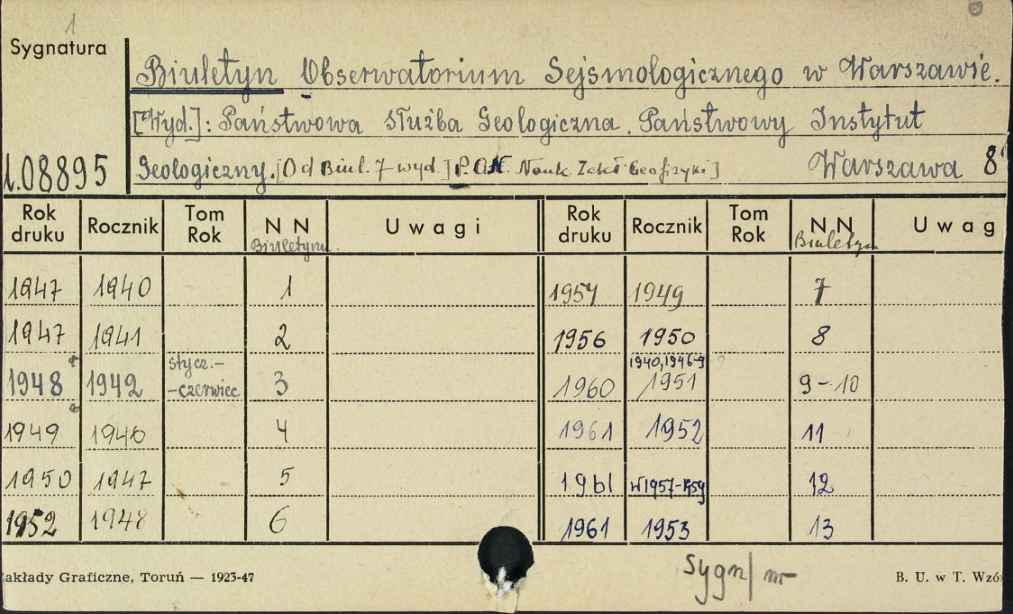 1
Sygnatura
Biuletyn Obserwatorium Sejsmologicznego w Warszawie.
[Wyd.]: Państwowa Służba Geologiczna. Państwowy Instytut
1.08895 Geologiczny. [Od Biul. 7 wyd.] P.A.N. Nauk. Zakł. Geofizyki] Warszawa 8°
Rok druku Rocznik Tom Rok N N Biuletynu. Uwagi Rok druku Rocznik Tom Rok N N Biuletyn Uwag
1947 1940 1 1954 1949 7
1947 1941 2 1956 1950 8
1948 1942 stycz.- -czerwiec 3 1960 1940,1946-9 1951 9-10
1949 1946 4 1961 1952 11
1950 1947 5 1961 12
1952 1948 6 1961 1953 13
akłady Graficzne, Toruń — 1923-47
Sygn/ nr
B. U. w T. Wzó